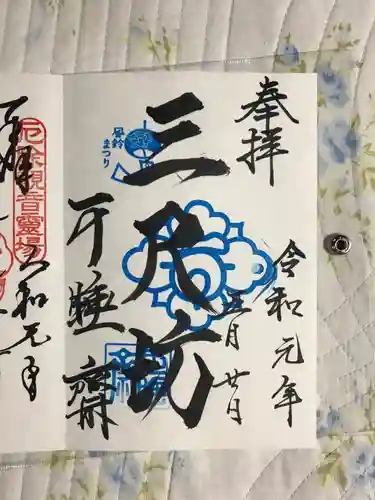 奉拝
令和元年
五月廿日
三尺坊
可睡齋
風鈴
まつり
厄除観音霊場
令和元年